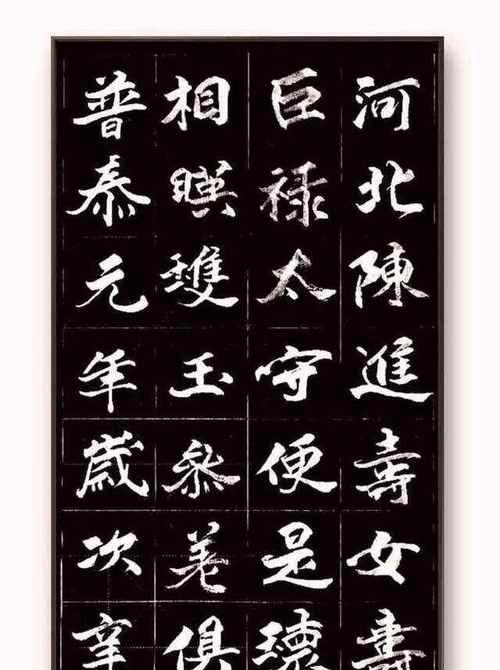 河北陳進壽女壽
巨祿太守便是瓌
相暎雙玉參差俱
普泰元年歲次辛